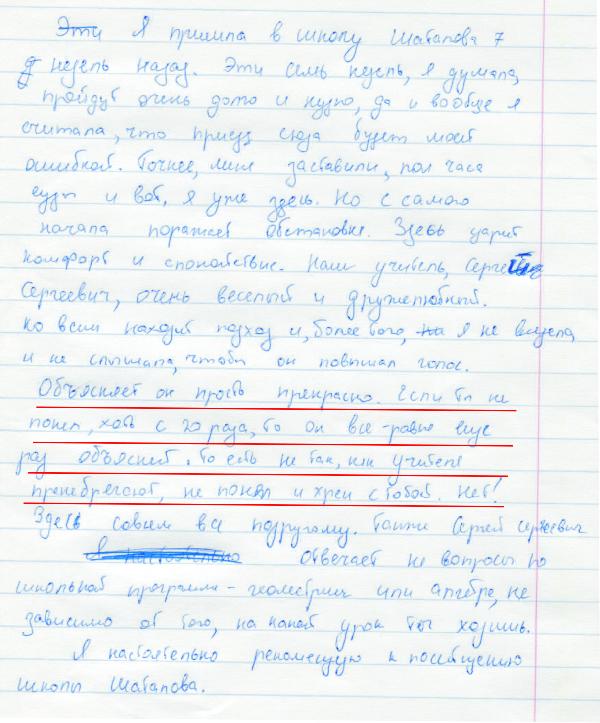 Эти Я пришла в школу Шаталова 7
недель назад. Эти семь недель, я думала,
пройдут очень долго и нудно, да и вообще я
считала, что приезд сюда будет моей
ошибкой. Точнее, меня заставили, пол часа
езды и вот, я уже здесь. Но с самого
начала поражает обстановка. Здесь царит
комфорт и спокойствие. Наш учитель, Сергей
Сергеевич, очень веселый и дружелюбный.
ко всем находит подход и, более того, я не видела,
и не слышала, чтобы он повышал голос.
Объясняет он просто прекрасно. Если ты не
понял, хоть с 20 раза, то он все-равно еще
раз объяснит. То есть не так, как учителя
пренебрегают, не понял и хрен с тобой. Нет!
Здесь совсем все подругому. Также Сергей Сергеевич
Я настоятельно отвечает на вопросы по
школьной программе - геометрии или алгебре, не
зависимо от того, на какой урок ты ходишь.
Я настоятельно рекомендую к посещению
школы Шаталова.